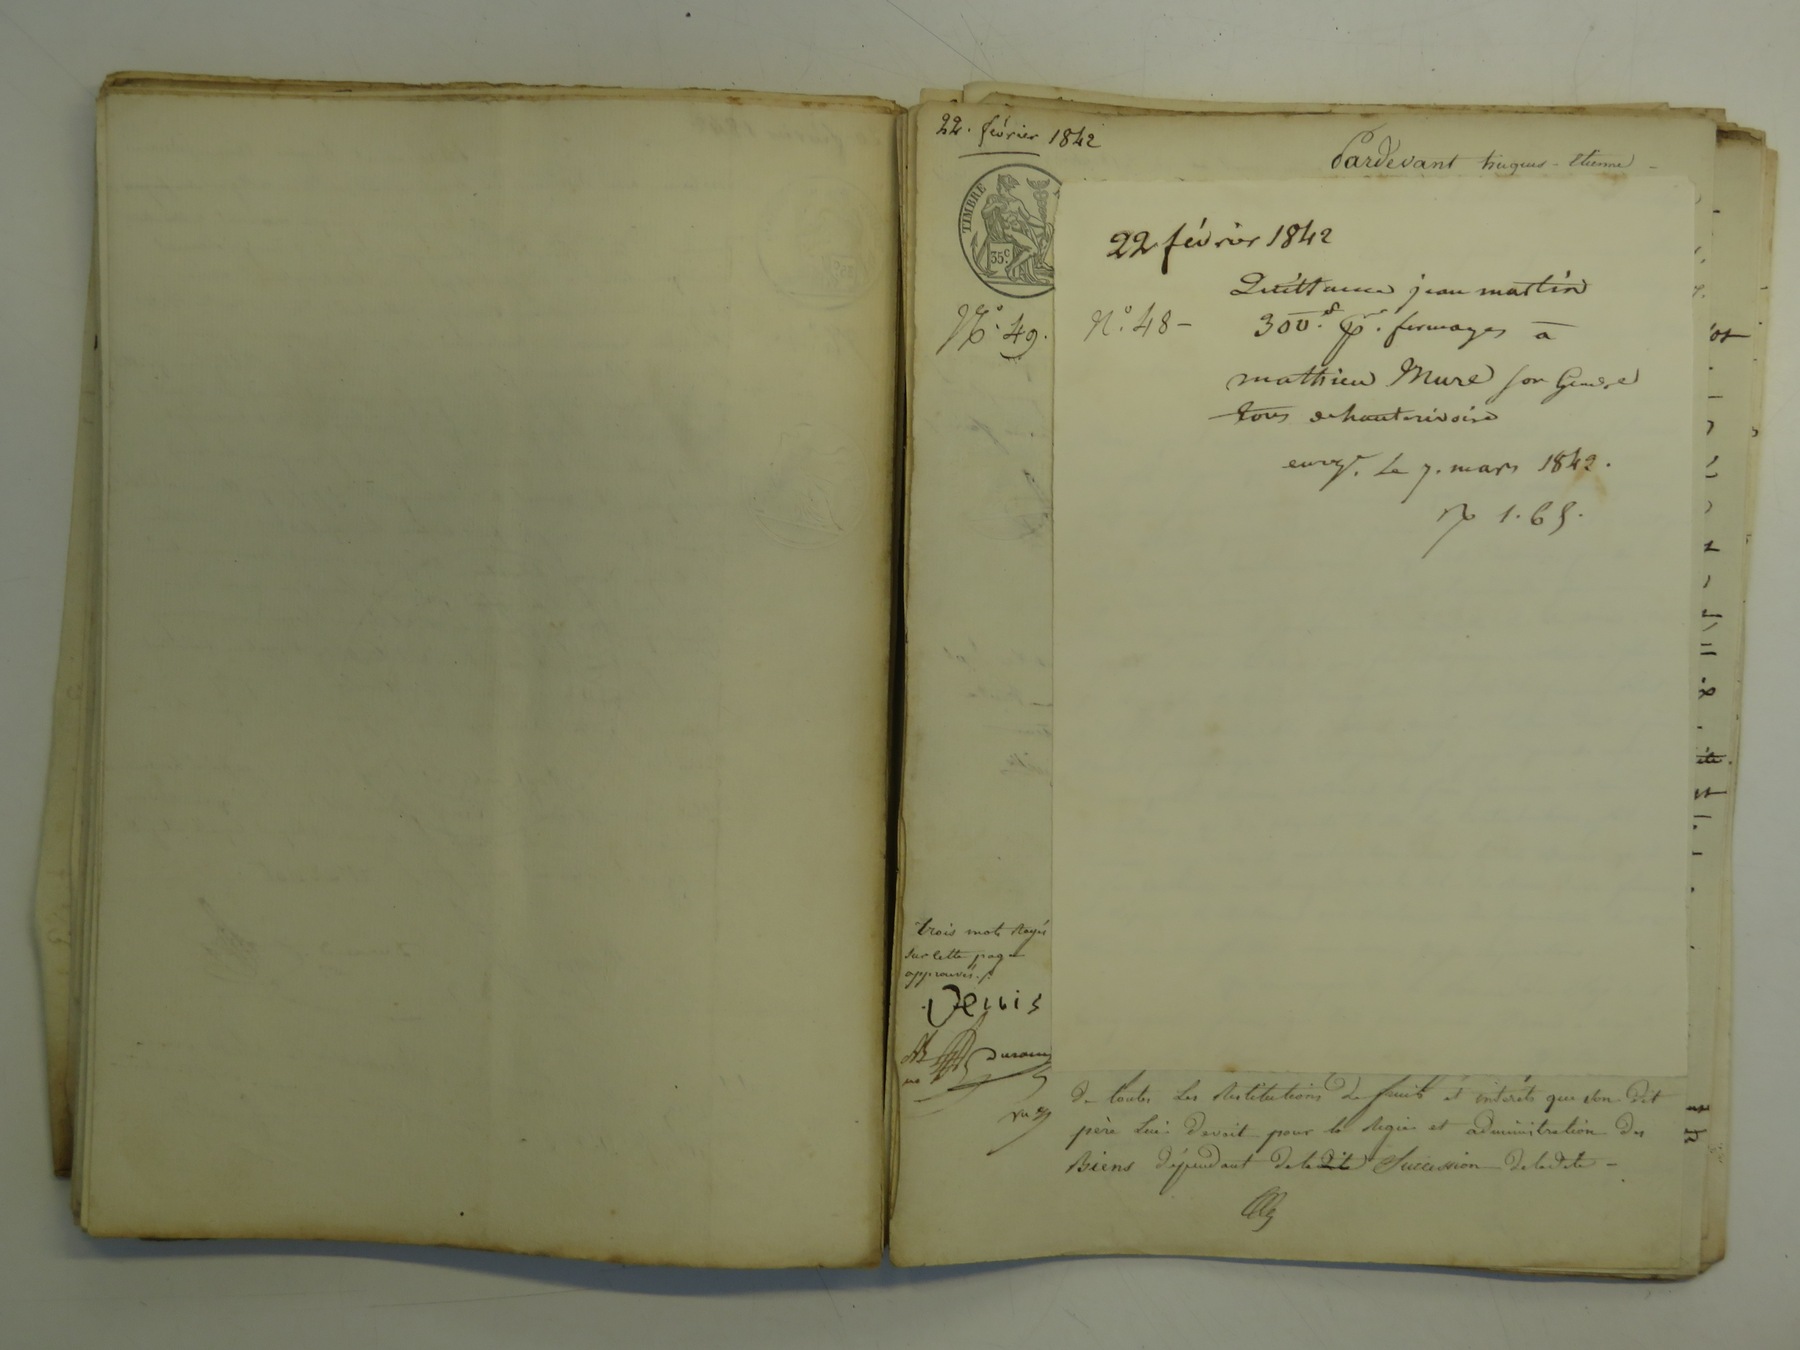 22. février 1842
Pardevant hugues - Etienne -
TIMBRE
35c.
N°. 49.
22 février 1842
Quittance jean martin
N°. 48 - 300.f pr. fermages à
mathieu Mure son Gendre
tous de hauterivoire
enreg. Le 7. mars 1842.
1.65.
trois mots Rayés
sur cette page
approuvés./.
de toutes Les Restitutions De fruits et intérêts que son dit
père Lui devait pour la Régie et administration des
Biens dépendant de ladite Succession de ladite -